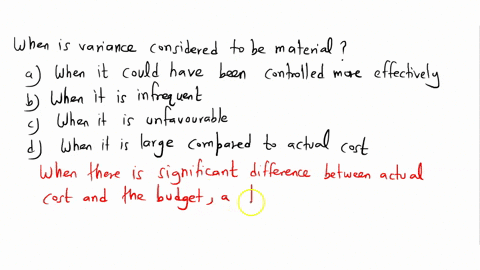 When is variance considered to be material?
a) When it could have been controlled more effectively
b) When it is infrequent
c) When it is unfavourable
d) When it is large compared to actual cost
When there is significant difference between actual
cost and the budget, a